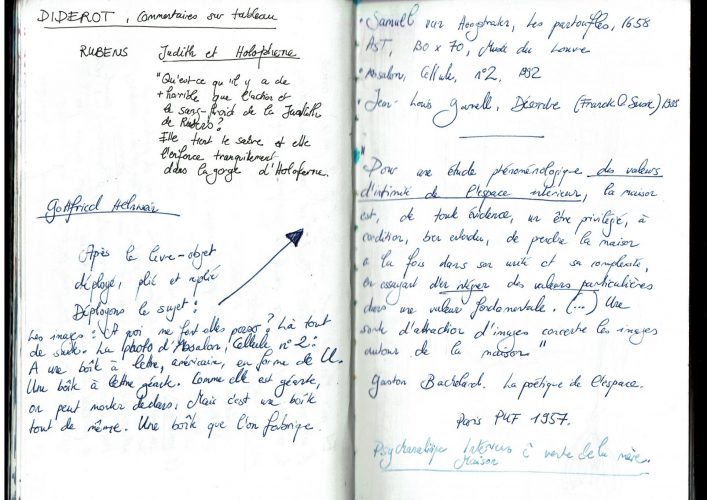 DIDEROT, Commentaires sur tableau
RUBENS Judith et Holopherne
"Qu'est-ce qu'il y a de
+ horrible que l'action et
le sang-froid de la Judith
de Rubens?
Elle tient le sabre et elle
l'enfonce tranquillement
dans la gorge d'Holoferne.
Gottfried Helnwein
Après le livre-objet
déployé, plié et replié
Déployons le sujet!
Les images: A quoi me font elles penser? Là tout
de suite. La photo d'Absalon, Cellule n°2:
A une boîte à lettre, américaine, en forme de U.
Une boîte à lettre géante. Comme elle est géante,
on peut monter dedans, Mais c'est une boîte
tout de même. Une boîte que l'on fabrique.
• Samuel van Hoogstraten, Les pantoufles, 1658
AST, 130 x 70, Musée du Louvre
• Absalon, Cellule, n°2, 1992
• Jean-Louis Garnell, Désordre
"Pour une étude phénoménologique des valeurs
d'intimité de l'espace intérieur, la maison
est, de toute évidence, un être privilégié, à
condition, bien entendu, de prendre la maison
à la fois dans son unité et sa complexité,
en essayant d'en intégrer des valeurs particulières
dans une valeur fondamentale. (...) Une
sorte d'attraction d'images concentre les images
autour de la maison"
Gaston Bachelard. La poétique de l'espace.
Paris PUF 1957.
Maison
ventre de la mère.